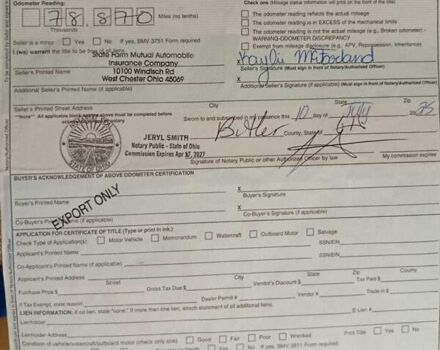 Odometer Reading:
78,870 Miles (no tenths)
Thousands
Check one (Mileage status information will print on the front of title)
The odometer reading reflects the actual mileage
The odometer reading is in EXCESS of the mechanical limits
The odometer reading is not the actual mileage (e.g., Broken odometer) -
WARNING-ODOMETER DISCREPANCY
Exempt from mileage disclosure (e.g., APV, Repossession, Inheritance)
Seller is a minor Yes No If yes, BMV 3751 Form required.
I (we) warrant the title to be free of all liens.
State Farm Mutual Automobile
Insurance Company
10100 Windisch Rd
West Chester Ohio 45069
Seller's Printed Name
X
Seller's Signature (Must sign in front of Notary/Authorized Officer)
X
Additional Seller's Printed Name (if applicable)
Additional Seller's Signature (Must sign in front of Notary/Authorized Officer)
Seller's Printed Street Address City State Zip
before
Sworn to and subscribed in my presence this 10 day of July 2025
Butler County, State of
JERYL SMITH
Notary Public - State of Ohio
Commission Expires Apr 17, 2027
Signature of Notary Public or other Authorized Officer by law
My commission expires
BUYER'S ACKNOWLEDGEMENT OF ABOVE ODOMETER CERTIFICATION
X
Buyer's Printed Name Buyer's Signature
X
Co-Buyer's Printed Name (if applicable) Co-Buyer's Signature (if applicable)
EXPORT ONLY
APPLICATION FOR CERTIFICATE OF TITLE (Type or print in ink.)
Check Type of Application(s): Motor Vehicle Memorandum Watercraft Outboard Motor Salvage
Applicant's Printed Name SSN/EIN
Co-Applicant's Printed Name (if applicable) SSN/EIN
Applicant's Printed Address City State Zip
Purchase Price $ Gross Tax Due $ Vendor's Discount $ Tax Paid $ County
If Tax Exempt, state reason Dealer Permit # Vendor # Trade in $
LIEN INFORMATION: If no lien, state "none." If more than one lien, attach statement of all additional liens.
Lienholder E-Lien #
Lienholder Address
Condition of vehicle/watercraft/outboard motor (check only one) Good Fair Poor Wrecked Print Title Yes No